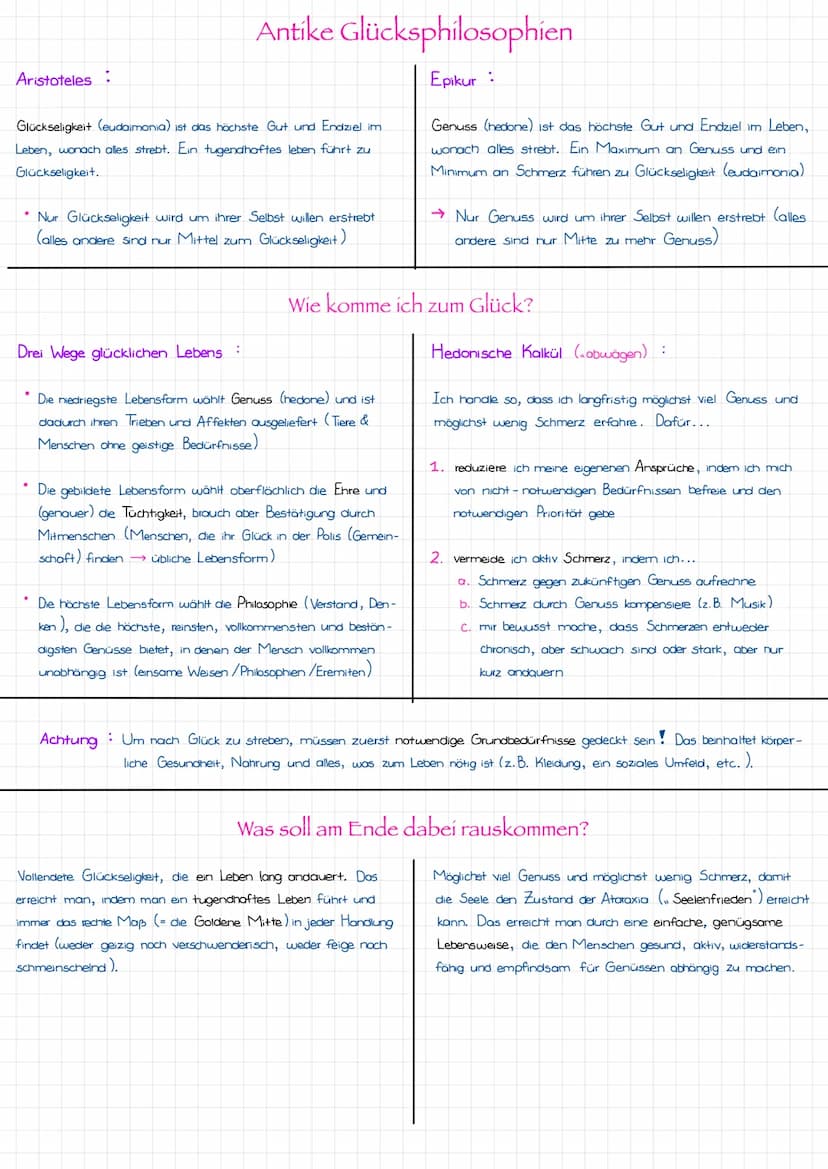 Antike Glücksphilosophien
Aristoteles :
Glückseligkeit (eudaimonia) ist das höchste Gut und Endziel im
Leben, wonach alles strebt. Ein tugendhaftes leben führt zu
Glückseligkeit.
• Nur Glückseligkeit wird um ihrer Selbst willen erstrebt
(alles andere sind nur Mittel zum Glückseligkeit)
Epikur :
Genuss (hedone) ist das höchste Gut und Endziel im Leben,
wonach alles strebt. Ein Maximum an Genuss und ein
Minimum an Schmerz führen zu Glückseligkeit (eudaimonia)
→ Nur Genuss wird um ihrer Selbst willen erstrebt (alles
andere sind nur Mitte zu mehr Genuss)
Wie komme ich zum Glück?
Drei Wege glücklichen Lebens :
• Die niedriegste Lebensform wählt Genuss (hedone) und ist
dadurch ihren Trieben und Affekten ausgeliefert (Tiere &
Menschen ohne geistige Bedürfnisse)
• Die gebildete Lebensform wählt oberflächlich die Ehre und
(genauer) die Tüchtigkeit, brauch aber Bestätigung durch
Mitmenschen (Menschen, die ihr Glück in der Polis (Gemein-
schaft) finden → übliche Lebensform)
• Die höchste Lebensform wählt die Philosophie (Verstand, Den-
ken), die die höchste, reinsten, vollkommensten und bestän-
digsten Genüsse bietet, in denen der Mensch vollkommen
unabhängig ist (einsame Weisen/Philosophien/Eremiten)
Hedonische Kalkül (~abwägen) :
Ich handle so, dass ich langfristig möglichst viel Genuss und
möglichst wenig Schmerz erfahre. Dafür...
1. reduziere ich meine eigenenen Ansprüche, indem ich mich
von nicht-notwendigen Bedürfnissen befreie und den
notwendigen Priorität gebe
2. vermeide ich aktiv Schmerz, indem ich...
a. Schmerz gegen zukünftigen Genuss aufrechne
b. Schmerz durch Genuss kompensiere (z.B. Musik)
c. mir bewusst mache, dass Schmerzen entweder
chronisch, aber schwach sind oder stark, aber nur
kurz andauern
Achtung : Um nach Glück zu streben, müssen zuerst notwendige Grundbedürfnisse gedeckt sein! Das beinhaltet körper-
liche Gesundheit, Nahrung und alles, was zum Leben nötig ist (z.B. Kleidung, ein soziales Umfeld, etc.).
Was soll am Ende dabei rauskommen?
Vollendete Glückseligkeit, die ein Leben lang andauert. Das
erreicht man, indem man ein tugendhaftes Leben führt und
immer das rechte Maß (= die Goldene Mitte) in jeder Handlung
findet (weder geizig noch verschwenderisch, weder feige noch
schmeinscheind).
Möglichst viel Genuss und möglichst wenig Schmerz, damit
die Seele den Zustand der Ataraxia („Seelenfrieden") erreicht
kann. Das erreicht man durch eine einfache, genügsame
Lebensweise, die den Menschen gesund, aktiv, widerstands-
fähig und empfindsam für Genüssen abhängig zu machen.